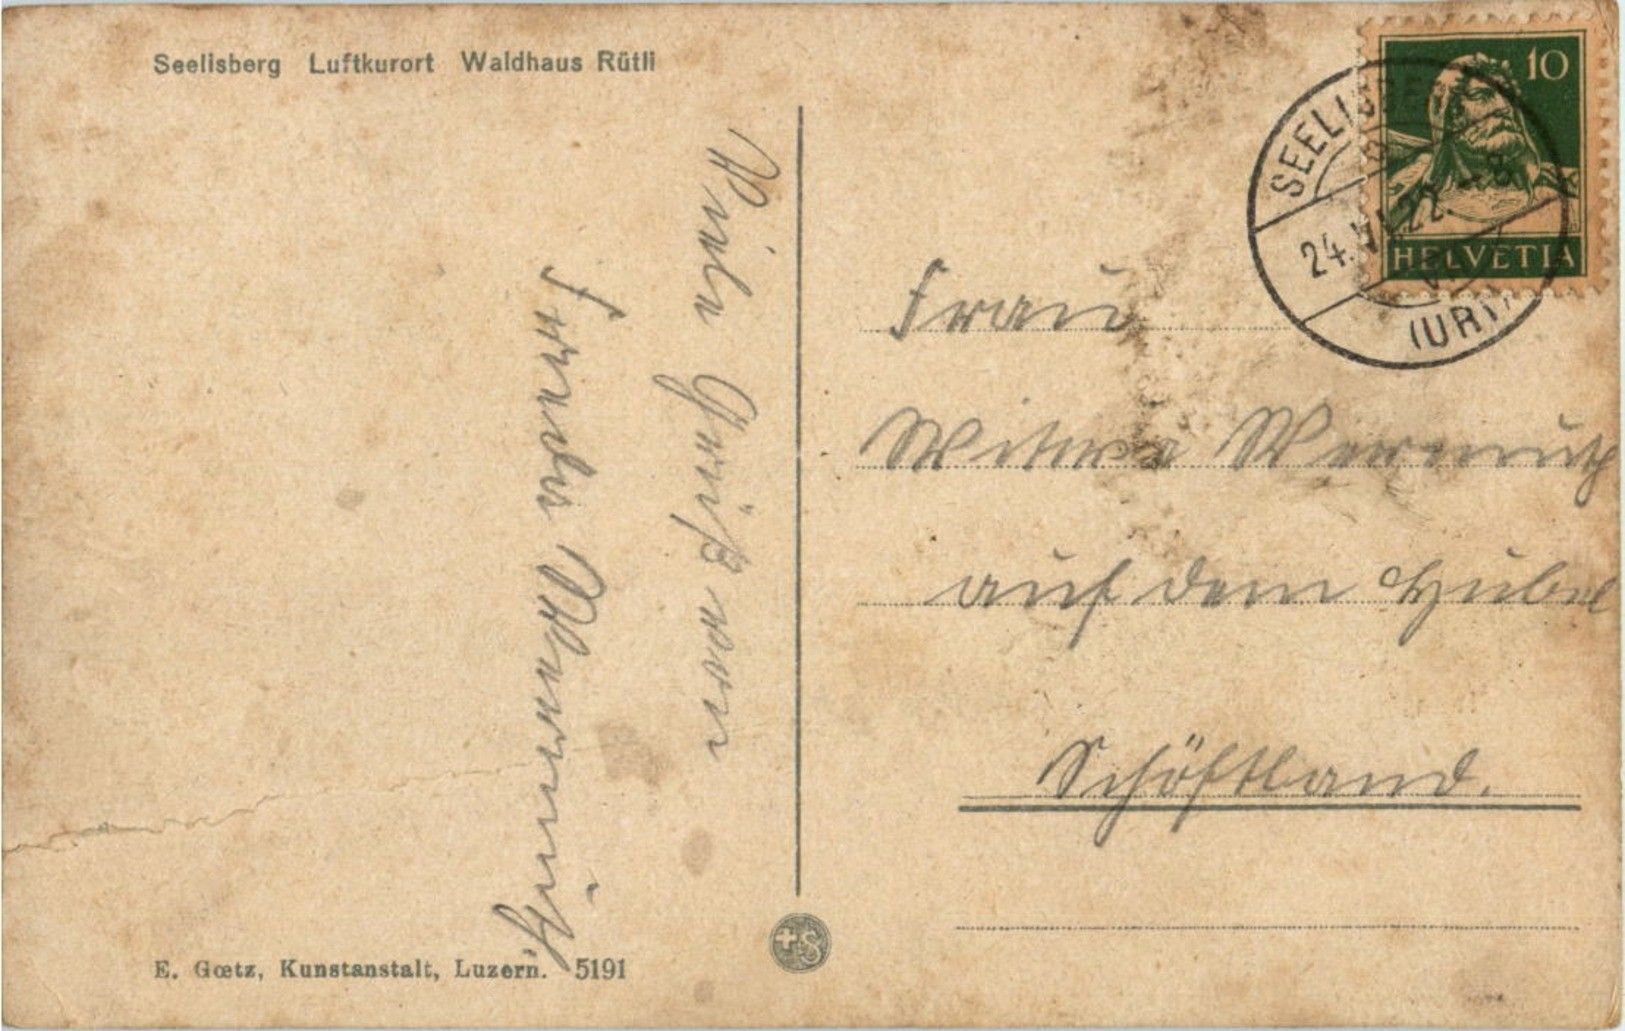 Seelisberg Luftkurort Waldhaus Rütli
Viele Grüße von
Frieda Wermuth
Frau
Witwe Wermuth
auf dem Hubel
Schöftland.
10
HELVETIA
SEELISBERG
24.VI.22.-8
(URI)
E. Gœtz, Kunstanstalt, Luzern. 5191
+S